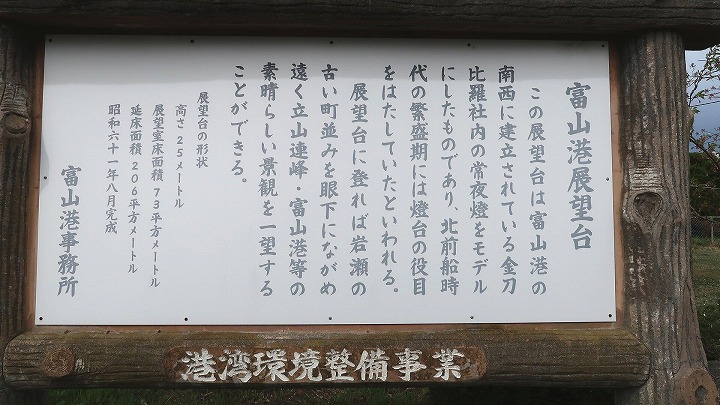 富山港展望台
この展望台は富山港の
南西に建立されている金刀
比羅社内の常夜燈をモデル
にしたものであり、北前船時
代の繁盛期には燈台の役目
をはたしていたといわれる。
展望台に登れば岩瀬の
古い町並みを眼下にながめ
遠く立山連峰・富山港等の
素晴らしい景観を一望する
ことができる。
展望台の形状
高さ 25メートル
展望室床面積 73平方メートル
延床面積 206平方メートル
昭和六十一年八月完成
富山港事務所
港湾環境整備事業